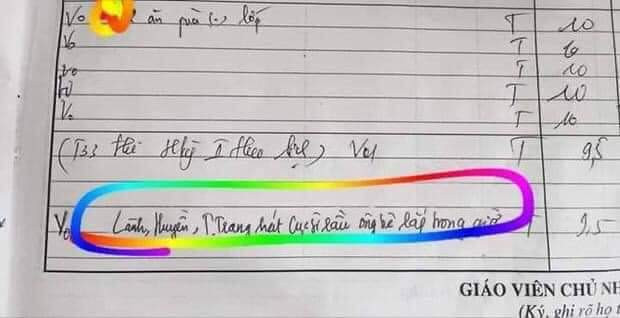 Vo ăn quà (..) lớp T 10
Vo T 10
Vo T 10
Vo T 10
Vo T 10
(T33 thi Hkỳ I theo lịch) Vo1 T 9,5
Vo Lành, Huyền, T.Trang hát cục sì lầu ông bê lắp trong giờ T 9,5
GIÁO VIÊN CHỦ NH
(Ký, ghi rõ họ t